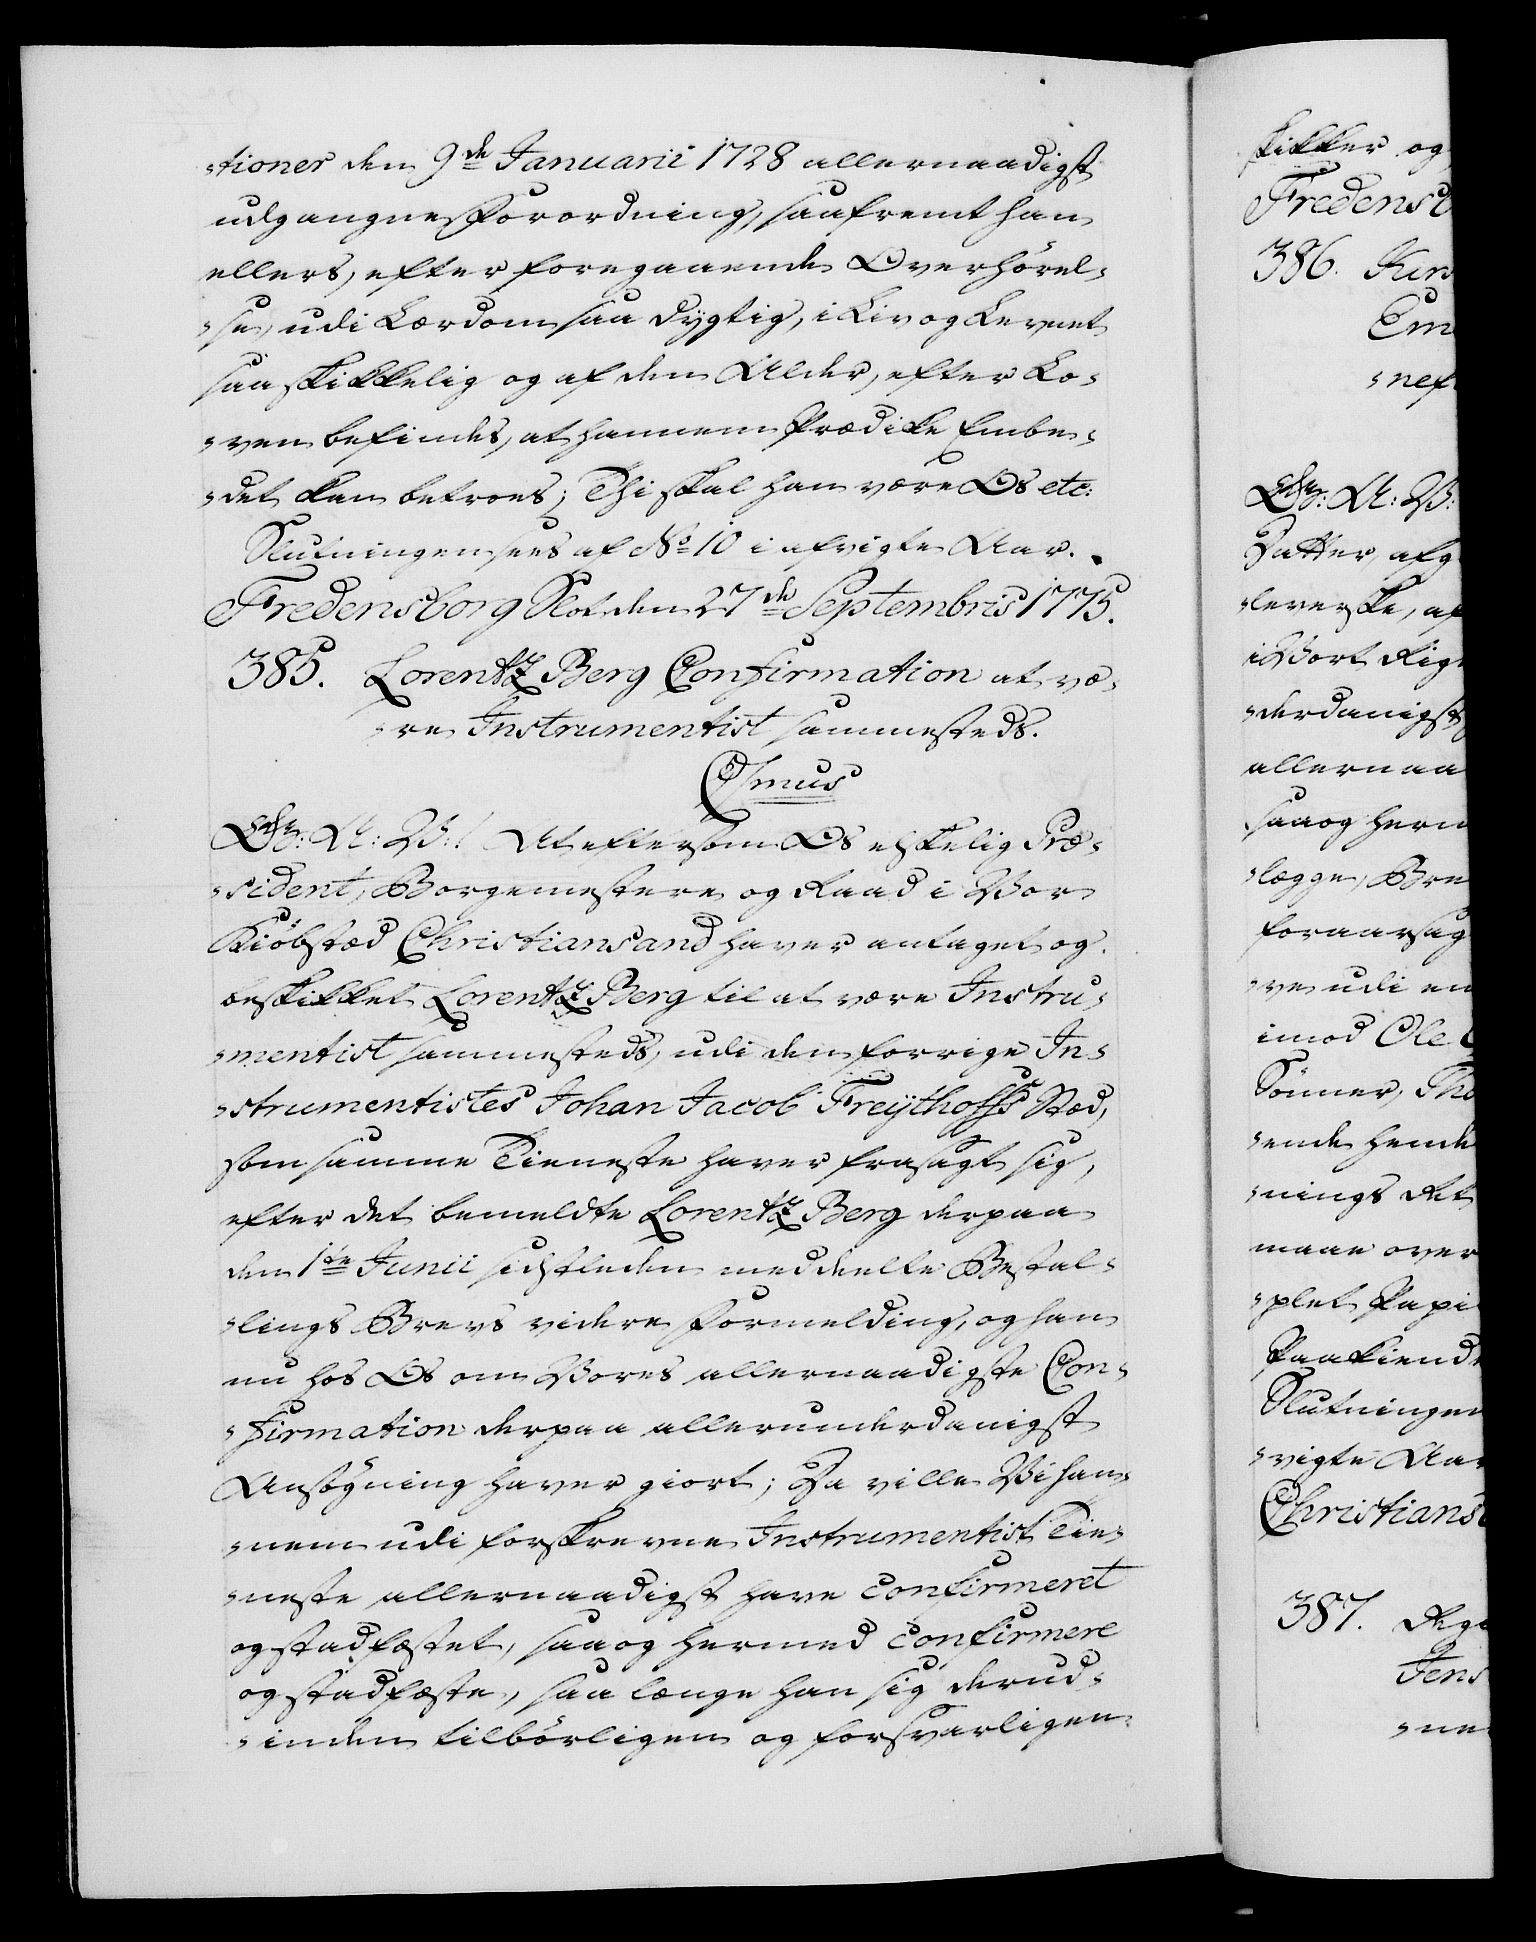 -tioner den 9de Januarii 1728 allernaadigst
udgangne Forordning, saafremt han
ellers, efter foregaaende Overhörel-
-se, udi Lærdom saa dygtig, i Liv og Levnet
saa skikkelig og af den Alder, efter Lo-
-ven befindes, at hannem Prædike Embe-
-det kan betroes; Thi skal han være Os etc:
Slutningen sees af No 10 i afvigte Aar.
Fredensborg Slot den 27de Septembris 1775.
385. Lorentz Berg Confirmation at væ-
-re Instrumentist sammesteds.
C7mus
G: A: V: At eftersom Os elskelig Præ-
-sident, Borgemestere og Raad i Vor
Kiöbstæd Christiansand haver antaget og
beskikket Lorentz Berg til at være Instru-
-mentist sammesteds, udi den forrige In-
-strumentistes Johan Jacob Freÿthoffs Stæd,
som samme Tieneste haver frasagt sig,
efter det bemeldte Lorentz Berg derpaa
den 1te Junii sidstleden meddeelte Bestal-
-lings Brevs videre Formelding, og han
nu hos Os om Vores allernaadigste Con-
-firmation derpaa allerunderdanigst
Ansögning haver giort; Da ville Vi han-
-nem udi forskrevne Instrumentist Tie-
-neste allernaadigst have confirmeret
og stadfæstet, saa og hermed confirmere
og stadfæste, saa længe han sig derud-
-inden tilbörligen og forsvarligen
skikker og
Fredensb
386.
Em
-nef
G: A: V:
Datter, afg
-leverske, af
i Vort Rige
-derdanigst
allernaa
saa og herm
-lægge, Bre
foraarsag
-ve udi en
imod Ole
Sönner, Tho
-ende hende
-nings Ret
maae over
-plet Papi
Paakiende
Slutningen
-vigte Aar
Christians
387.
Jens
-ne